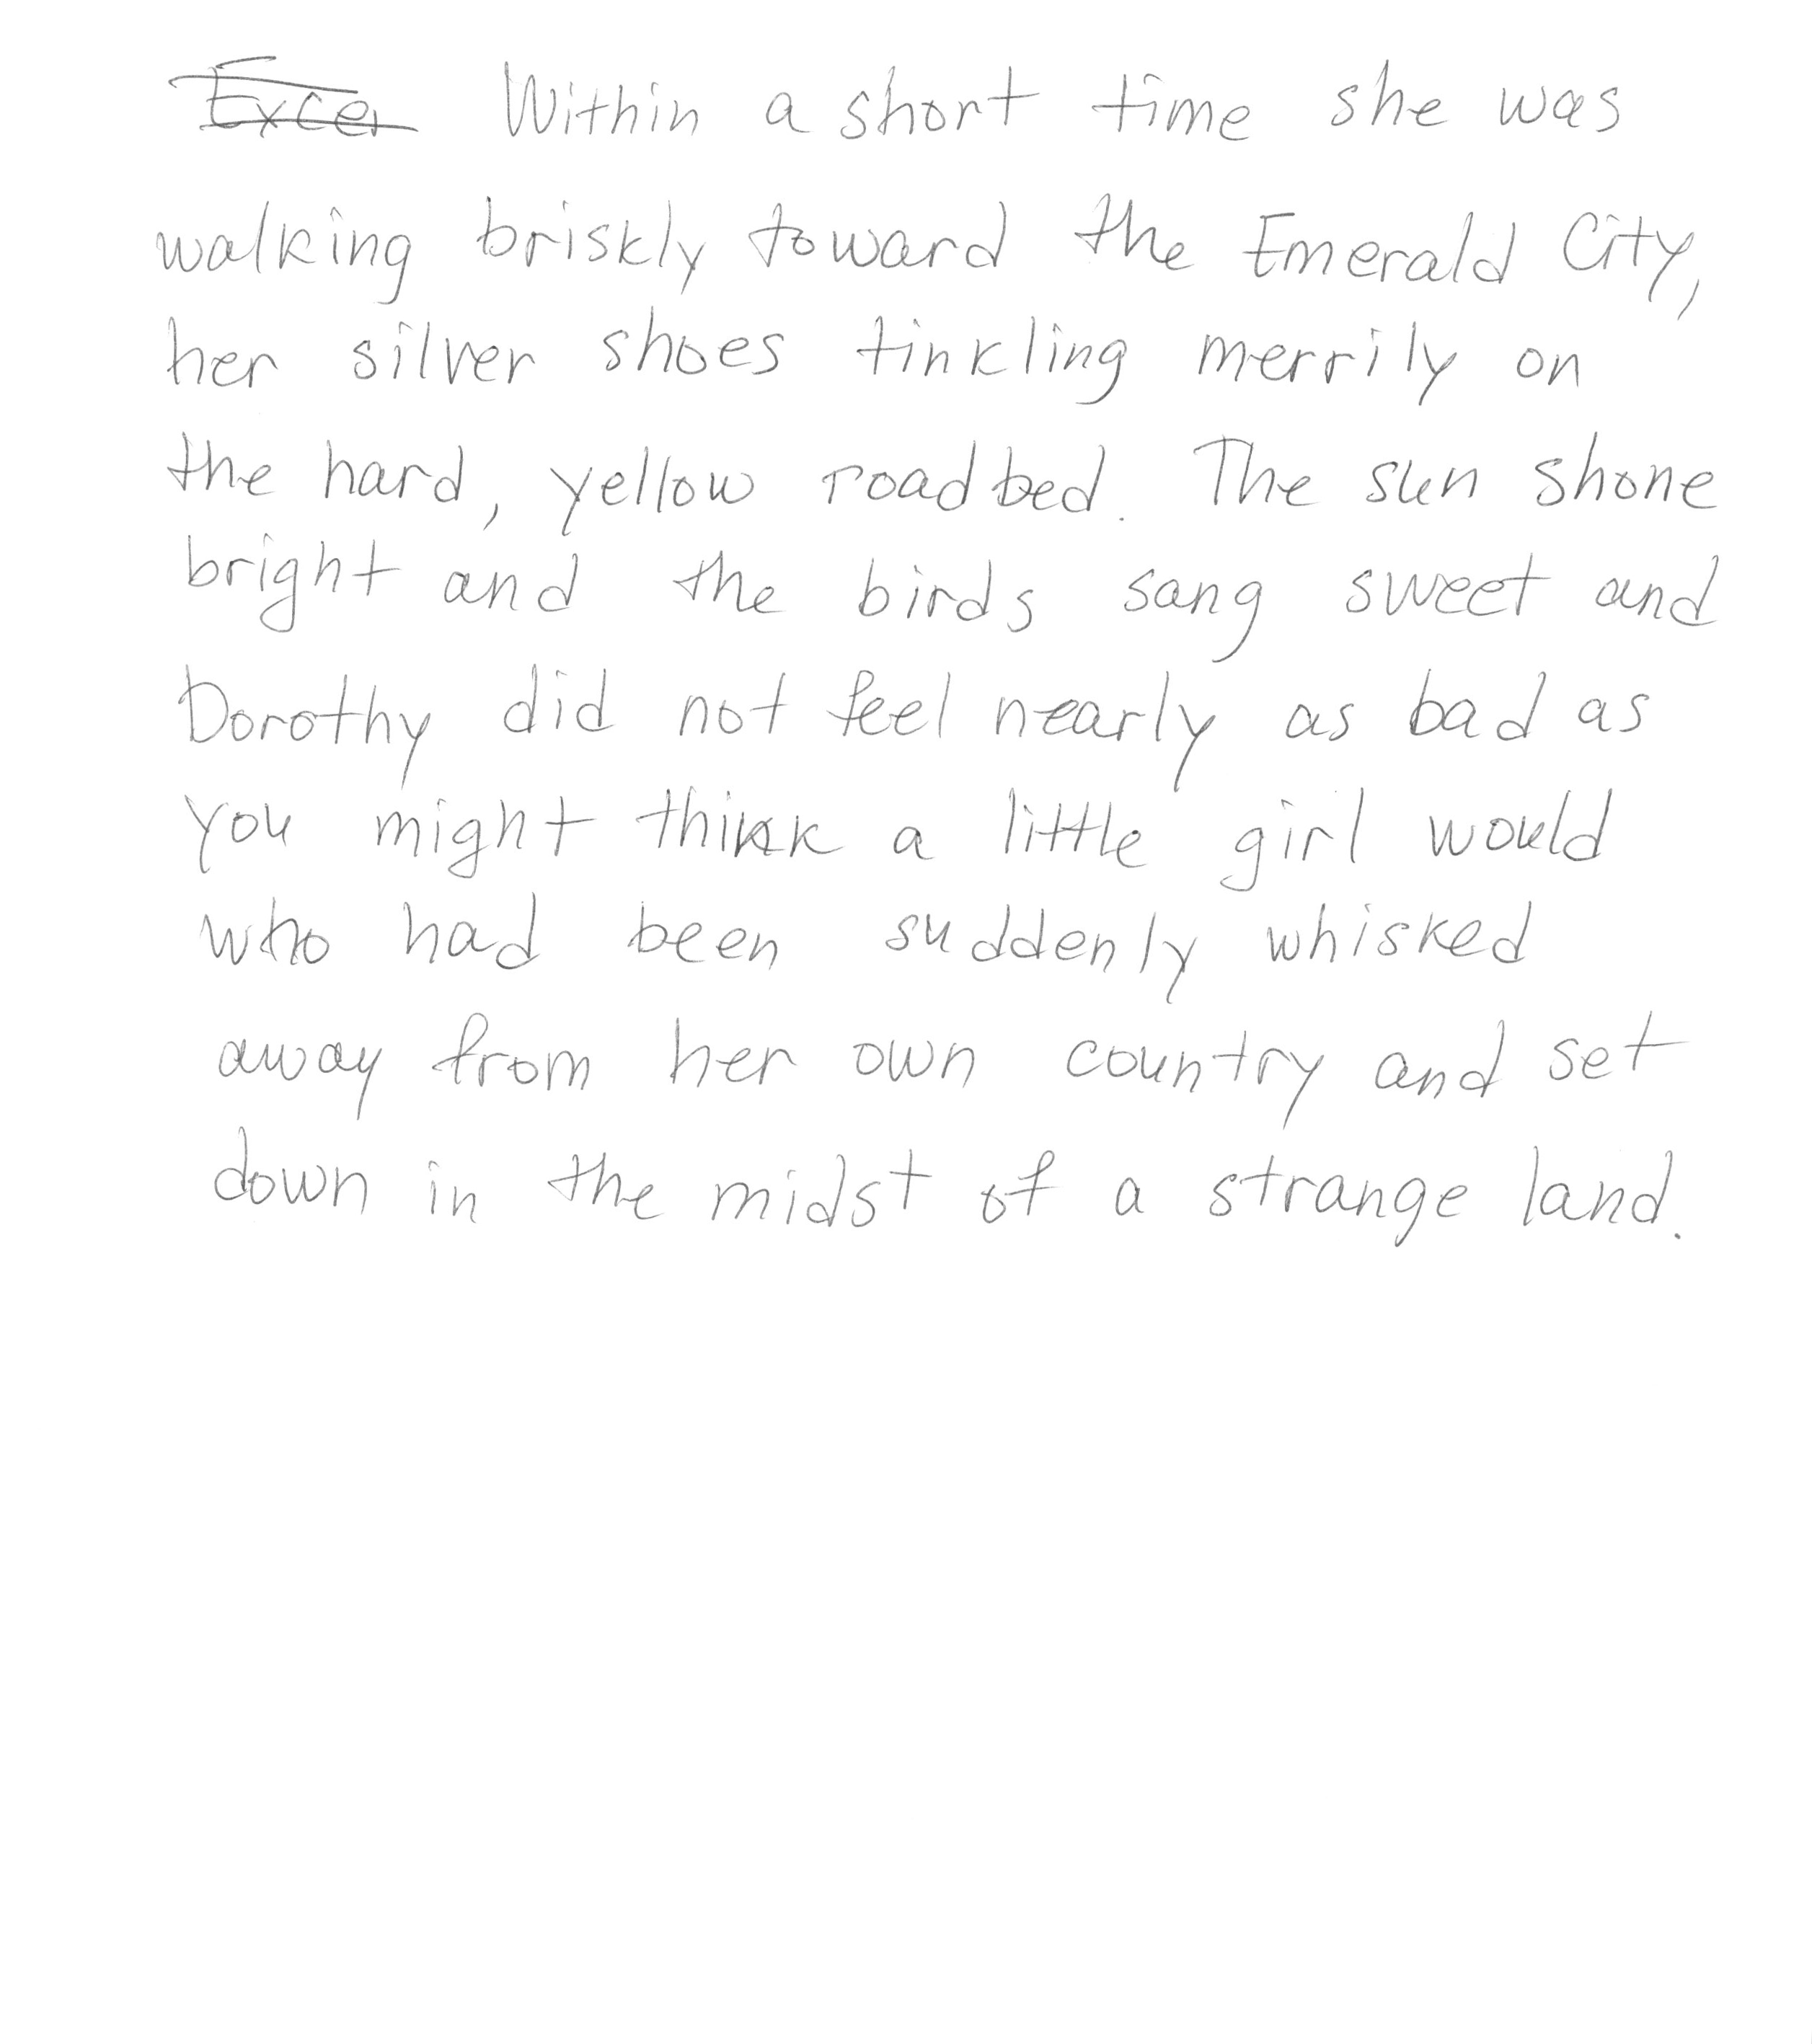 Excer Within a short time she was
walking briskly toward the Emerald City,
her silver shoes tinkling merrily on
the hard, yellow roadbed. The sun shone
bright and the birds sang sweet and
Dorothy did not feel nearly as bad as
you might think a little girl would
who had been suddenly whisked
away from her own country and set
down in the midst of a strange land.